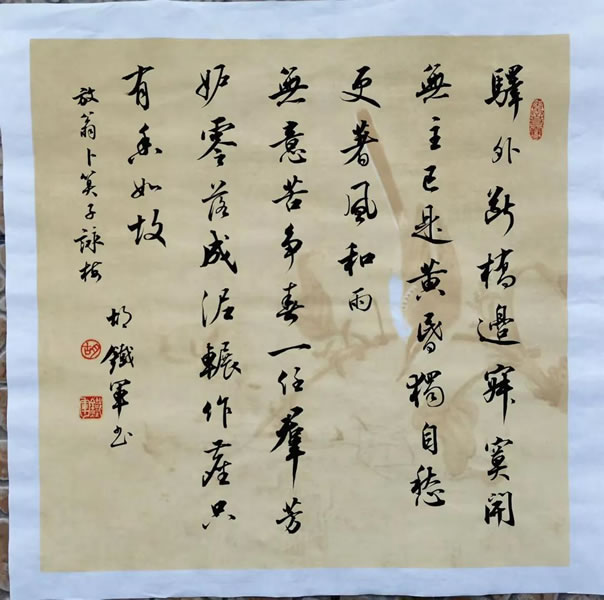 驛外斷橋邊寂寞開
無主已是黃昏獨自愁
更著風和雨
無意苦争春一任群芳
妒零落成泥輾作塵只
有香如故
放翁卜算子詠梅
胡鐵軍书
胡